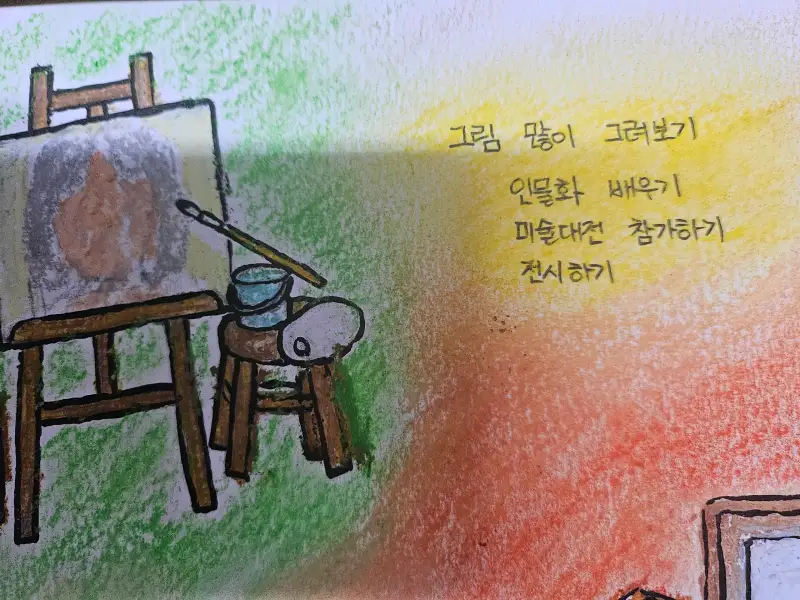 그림 많이 그려보기
인물화 배우기
미술대전 참가하기
전시하기